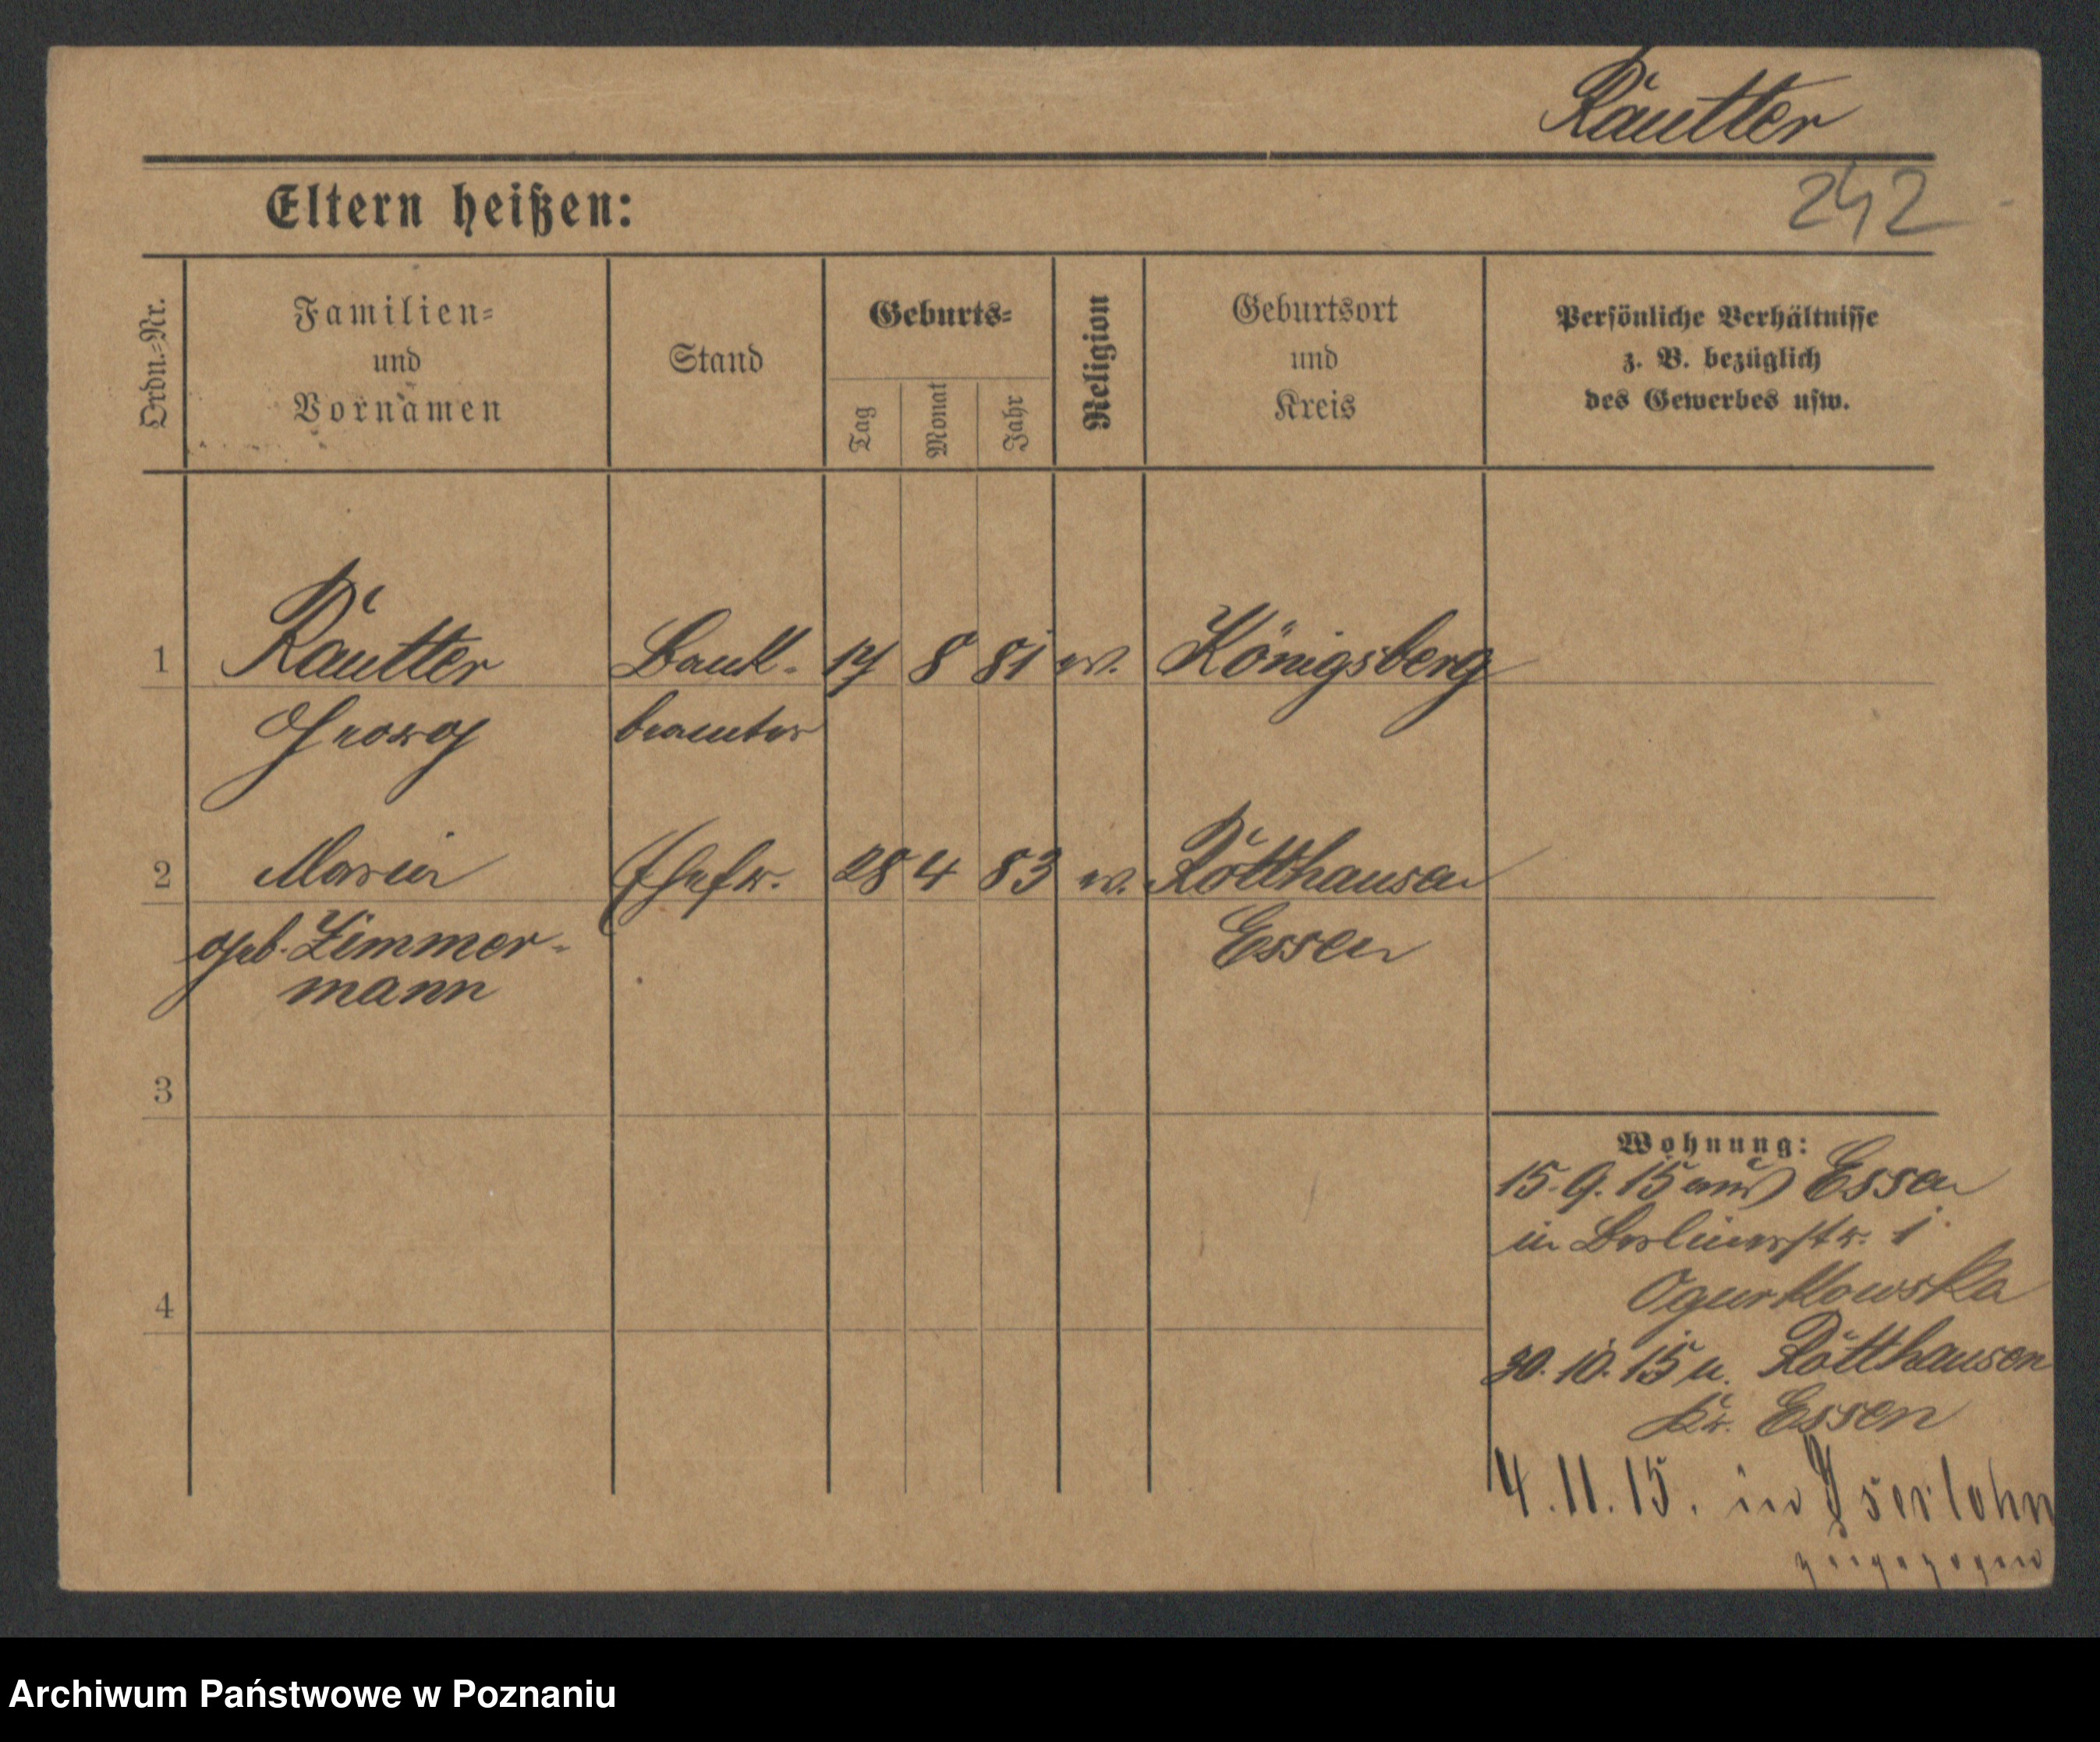 Räutter
242
Eltern heißen:
Ordn.-Nr.
Familien-
und
Vornamen
Stand
Geburts-
Tag
Monat
Jahr
Religion
Geburtsort
und
Kreis
Persönliche Verhältnisse
z. B. bezüglich
des Gewerbes usw.
1 Räutter Bank- 17 8 81 ev. Königsberg
Georg beamter
2 Maria Ehefr. 28 4 83 ev. Rotthausen
geb. Zimmer- Essen
mann
3
4
Wohnung:
15.9.15 aus Essen
in Berlinerstr. 1
Ogurkowska
30.10.15 n. Rotthausen
Kr. Essen
4.11.15. in Iserlohn
zugezogen
Archiwum Państwowe w Poznaniu